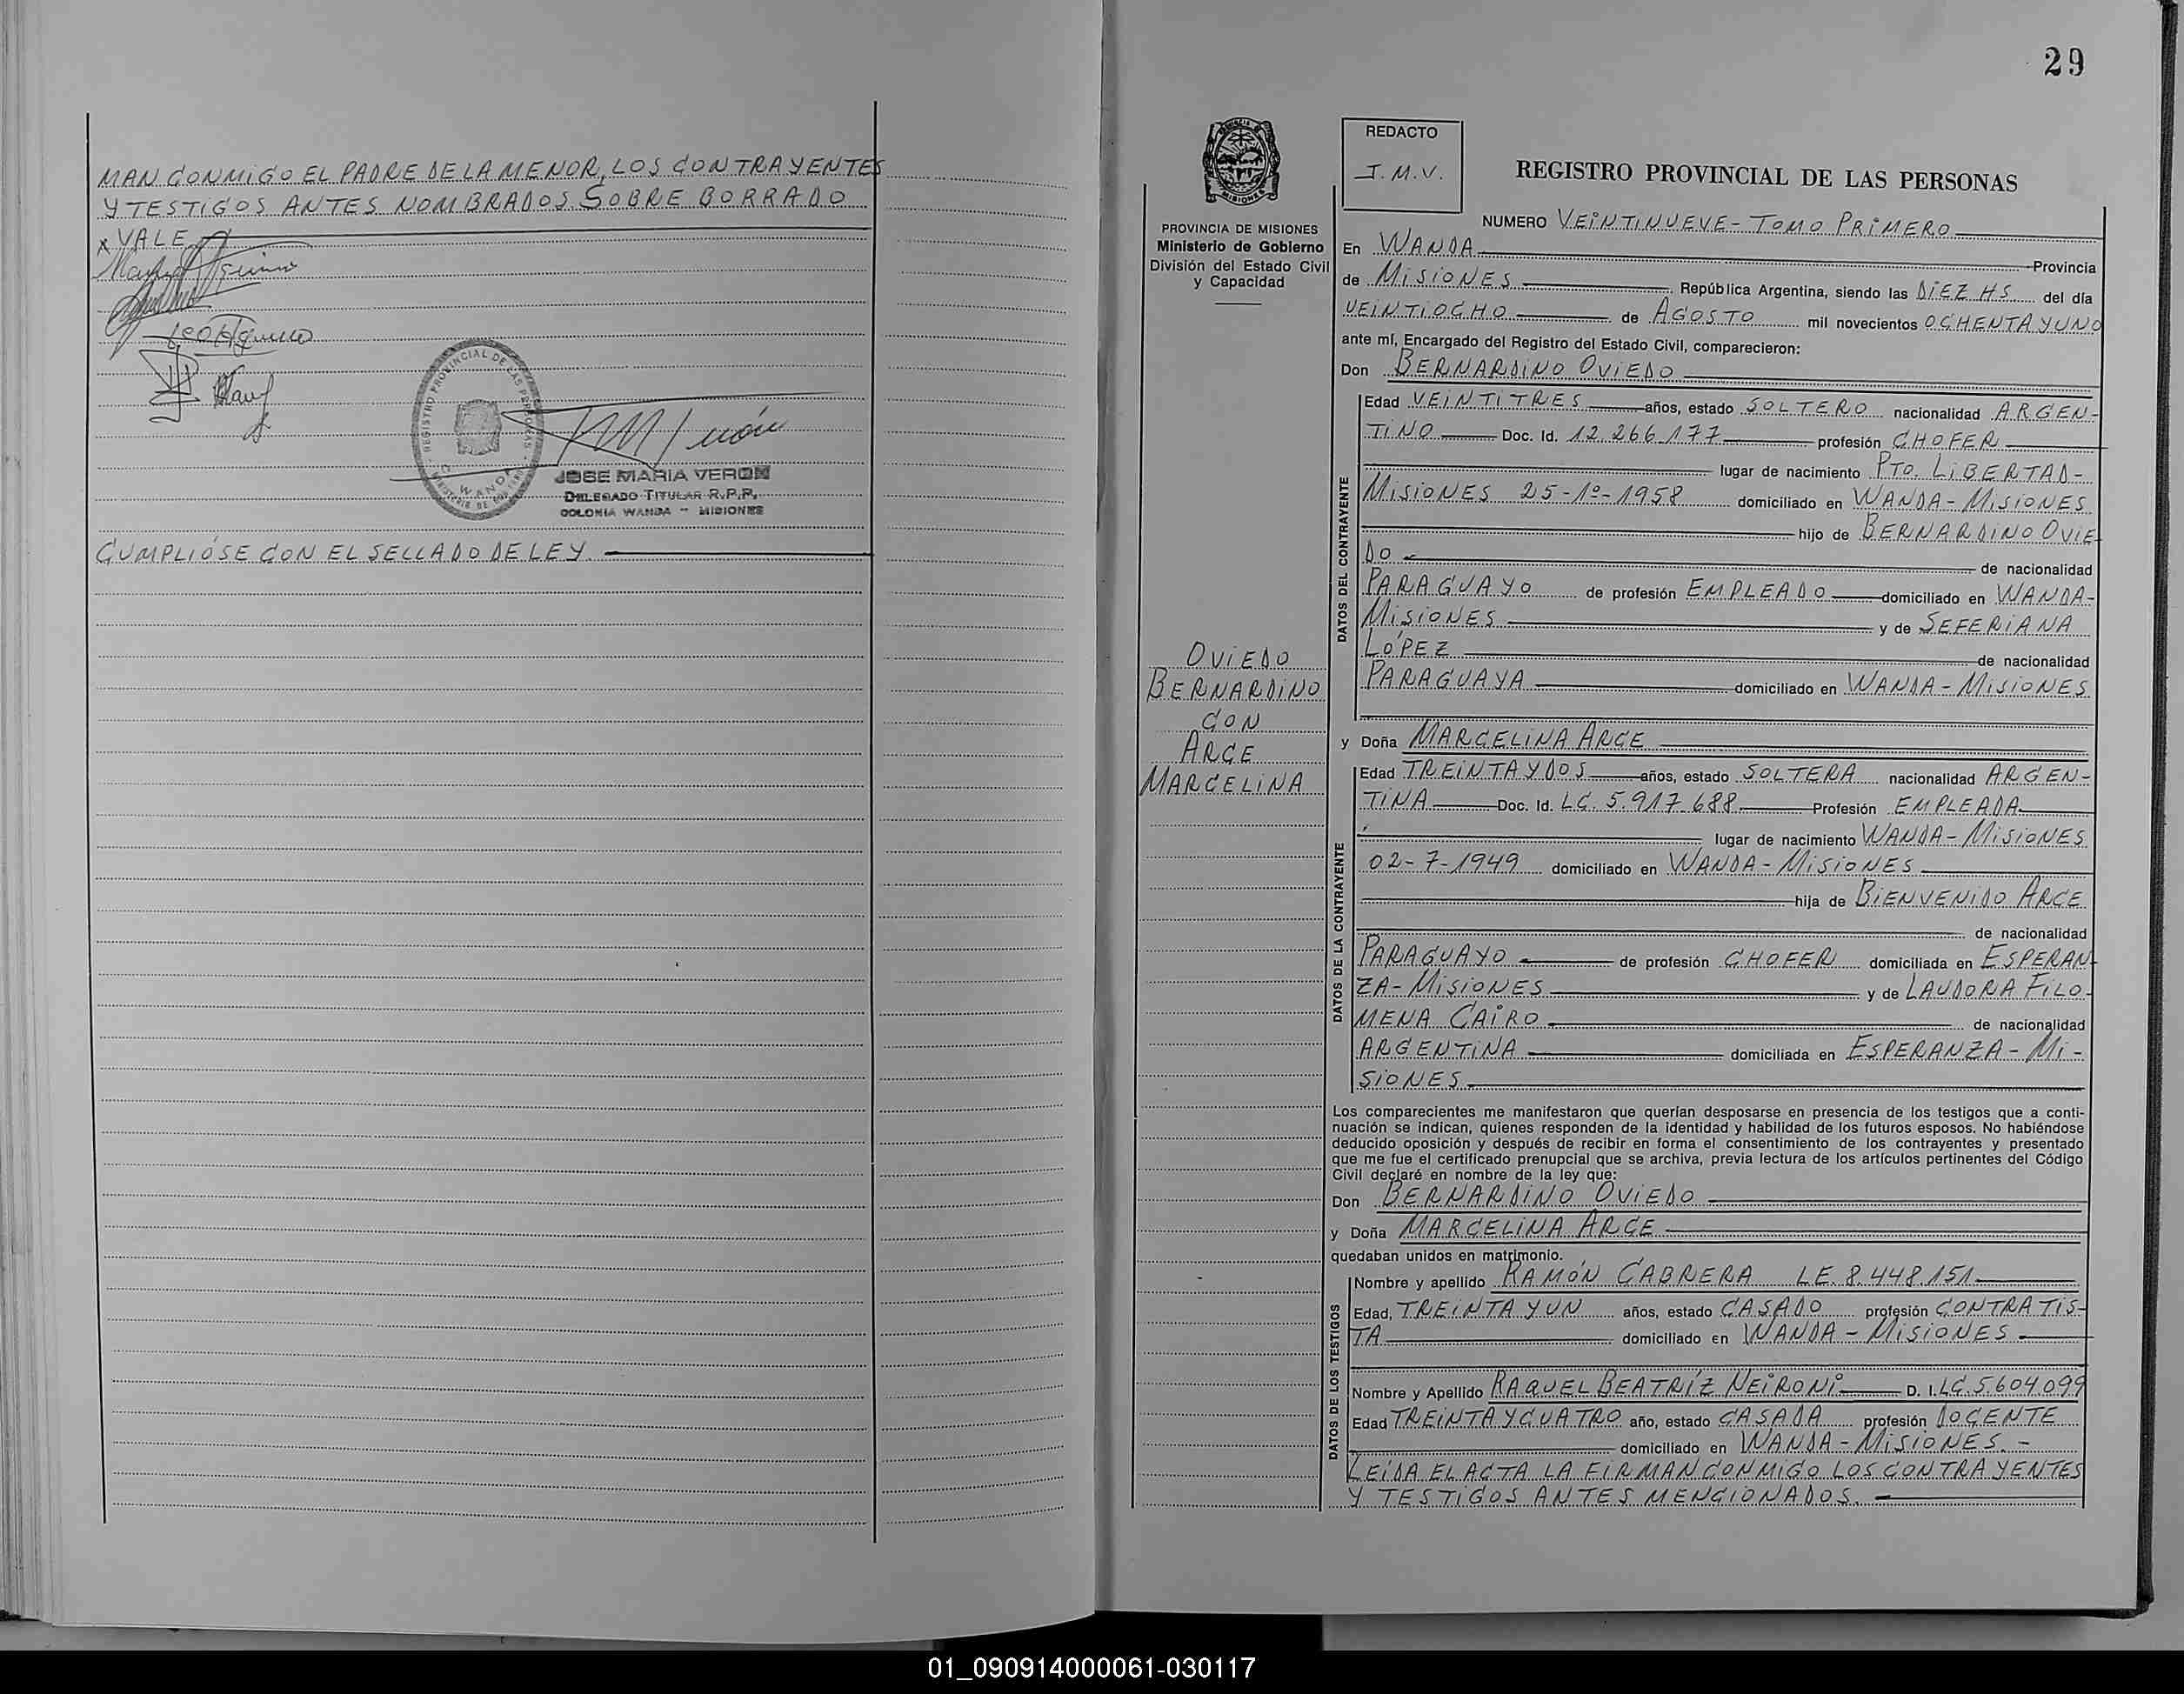 MAN CONMIGO EL PADRE DE LA MENOR, LOS CONTRAYENTES
Y TESTIGOS ANTES NOMBRADOS. SOBRE BORRADO
x VALE
REGISTRO PROVINCIAL DE LAS PERSONAS
WANDA
JOSE MARIA VERON
DELEGADO TITULAR R.P.P.
COLONIA WANDA - MISIONES
CUMPLIÓSE CON EL SELLADO DE LEY.
29
PROVINCIA DE MISIONES
Ministerio de Gobierno
División del Estado Civil
y Capacidad
OVIEDO
BERNARDINO
CON
ARCE
MARCELINA
REDACTO
J.M.V.
REGISTRO PROVINCIAL DE LAS PERSONAS
NUMERO VEINTINUEVE - TOMO PRIMERO
En WANDA Provincia
de MISIONES República Argentina, siendo las DIEZ HS del día
VEINTIOCHO de AGOSTO mil novecientos OCHENTA Y UNO
ante mí, Encargado del Registro del Estado Civil, comparecieron:
Don BERNARDINO OVIEDO
DATOS DEL CONTRAYENTE
Edad VEINTITRES años, estado SOLTERO nacionalidad ARGEN-
TINO Doc. Id. 12.266.177 profesión CHOFER
lugar de nacimiento PTO. LIBERTAD-
MISIONES 25-1º-1958 domiciliado en WANDA - MISIONES
hijo de BERNARDINO OVIE
DO de nacionalidad
PARAGUAYO de profesión EMPLEADO domiciliado en WANDA-
MISIONES y de SEFERIANA
LÓPEZ de nacionalidad
PARAGUAYA domiciliado en WANDA - MISIONES
y Doña MARCELINA ARCE
DATOS DE LA CONTRAYENTE
Edad TREINTA Y DOS años, estado SOLTERA nacionalidad ARGEN-
TINA Doc. Id. LC. 5.917.688 Profesión EMPLEADA
lugar de nacimiento WANDA - MISIONES
02-7-1949 domiciliado en WANDA - MISIONES
hija de BIENVENIDO ARCE
de nacionalidad
PARAGUAYO de profesión CHOFER domiciliada en ESPERAN
ZA - MISIONES y de LAUDORA FILO-
MENA CAIRO de nacionalidad
ARGENTINA domiciliada en ESPERANZA - MI-
SIONES
Los comparecientes me manifestaron que querían desposarse en presencia de los testigos que a conti-
nuación se indican, quienes responden de la identidad y habilidad de los futuros esposos. No habiéndose
deducido oposición y después de recibir en forma el consentimiento de los contrayentes y presentado
que me fue el certificado prenupcial que se archiva, previa lectura de los artículos pertinentes del Código
Civil declaré en nombre de la ley que:
Don BERNARDINO OVIEDO
y Doña MARCELINA ARCE
quedaban unidos en matrimonio.
DATOS DE LOS TESTIGOS
Nombre y apellido RAMÓN CABRERA LE. 8.448.151
Edad, TREINTA Y UN años, estado CASADO profesión CONTRATIS-
TA domiciliado en WANDA - MISIONES
Nombre y Apellido RAQUEL BEATRÍZ NEIRONI D. I. LC. 5.604.099
Edad TREINTA Y CUATRO año, estado CASADA profesión DOCENTE
domiciliado en WANDA - MISIONES. -
LEÍDA EL ACTA LA FIRMAN CONMIGO LOS CONTRAYENTES
Y TESTIGOS ANTES MENCIONADOS.
01_090914000061-030117